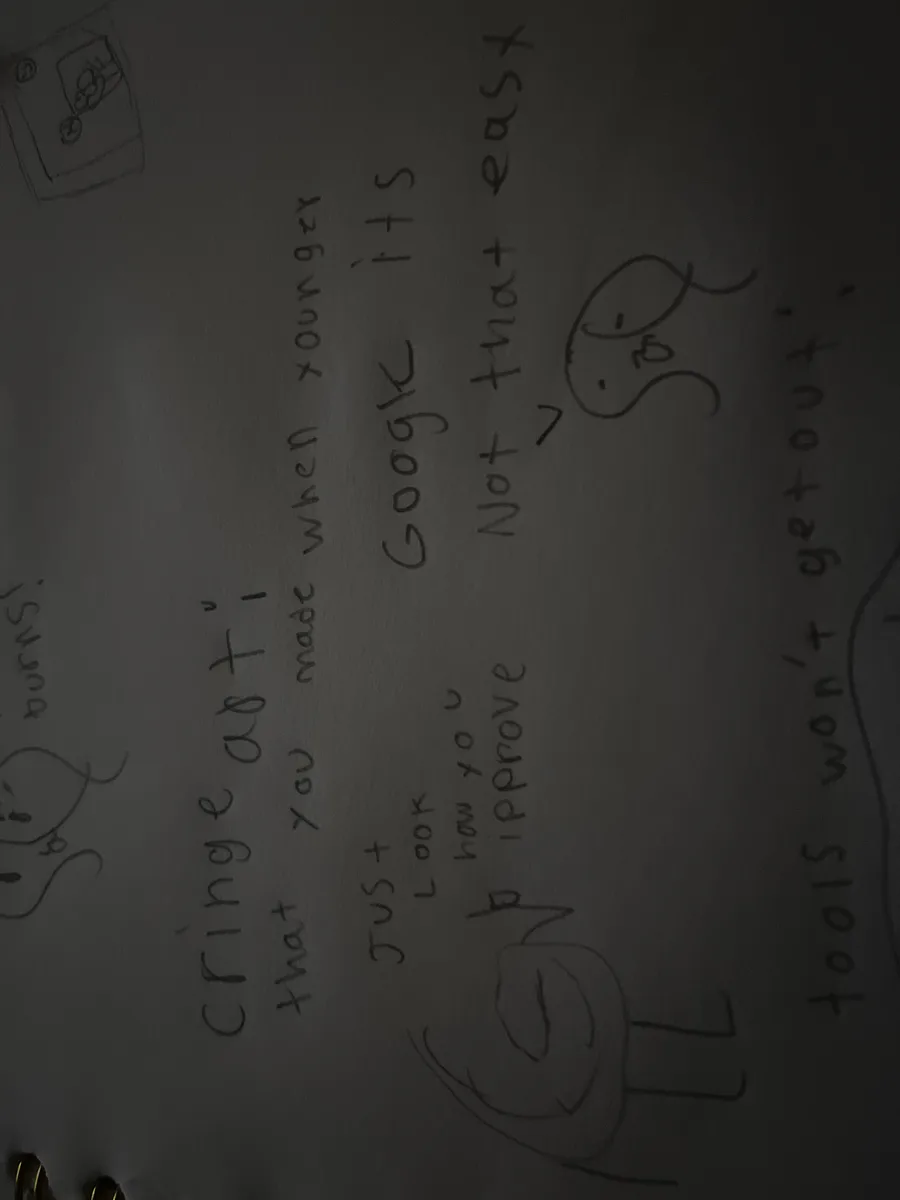 burns!
cringe art;
that you made when younger
Just
Look
how you
ipprove
Google its
Not that easy
tools won't get out;